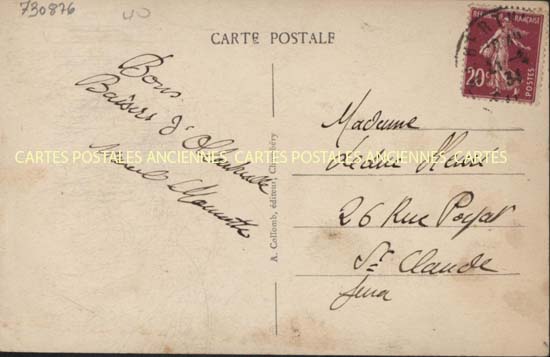 730876
40
CARTE POSTALE
RÉPUBLIQUE FRANÇAISE
20c
POSTES
Bons
Baisers d'Albertville
A. Collomb, éditeur, Chambéry
CARTES POSTALES ANCIENNES CARTES POSTALES ANCIENNES CARTES POSTALES ANCIENNES
Madame
26 Rue Poyat
St Claude
Jura